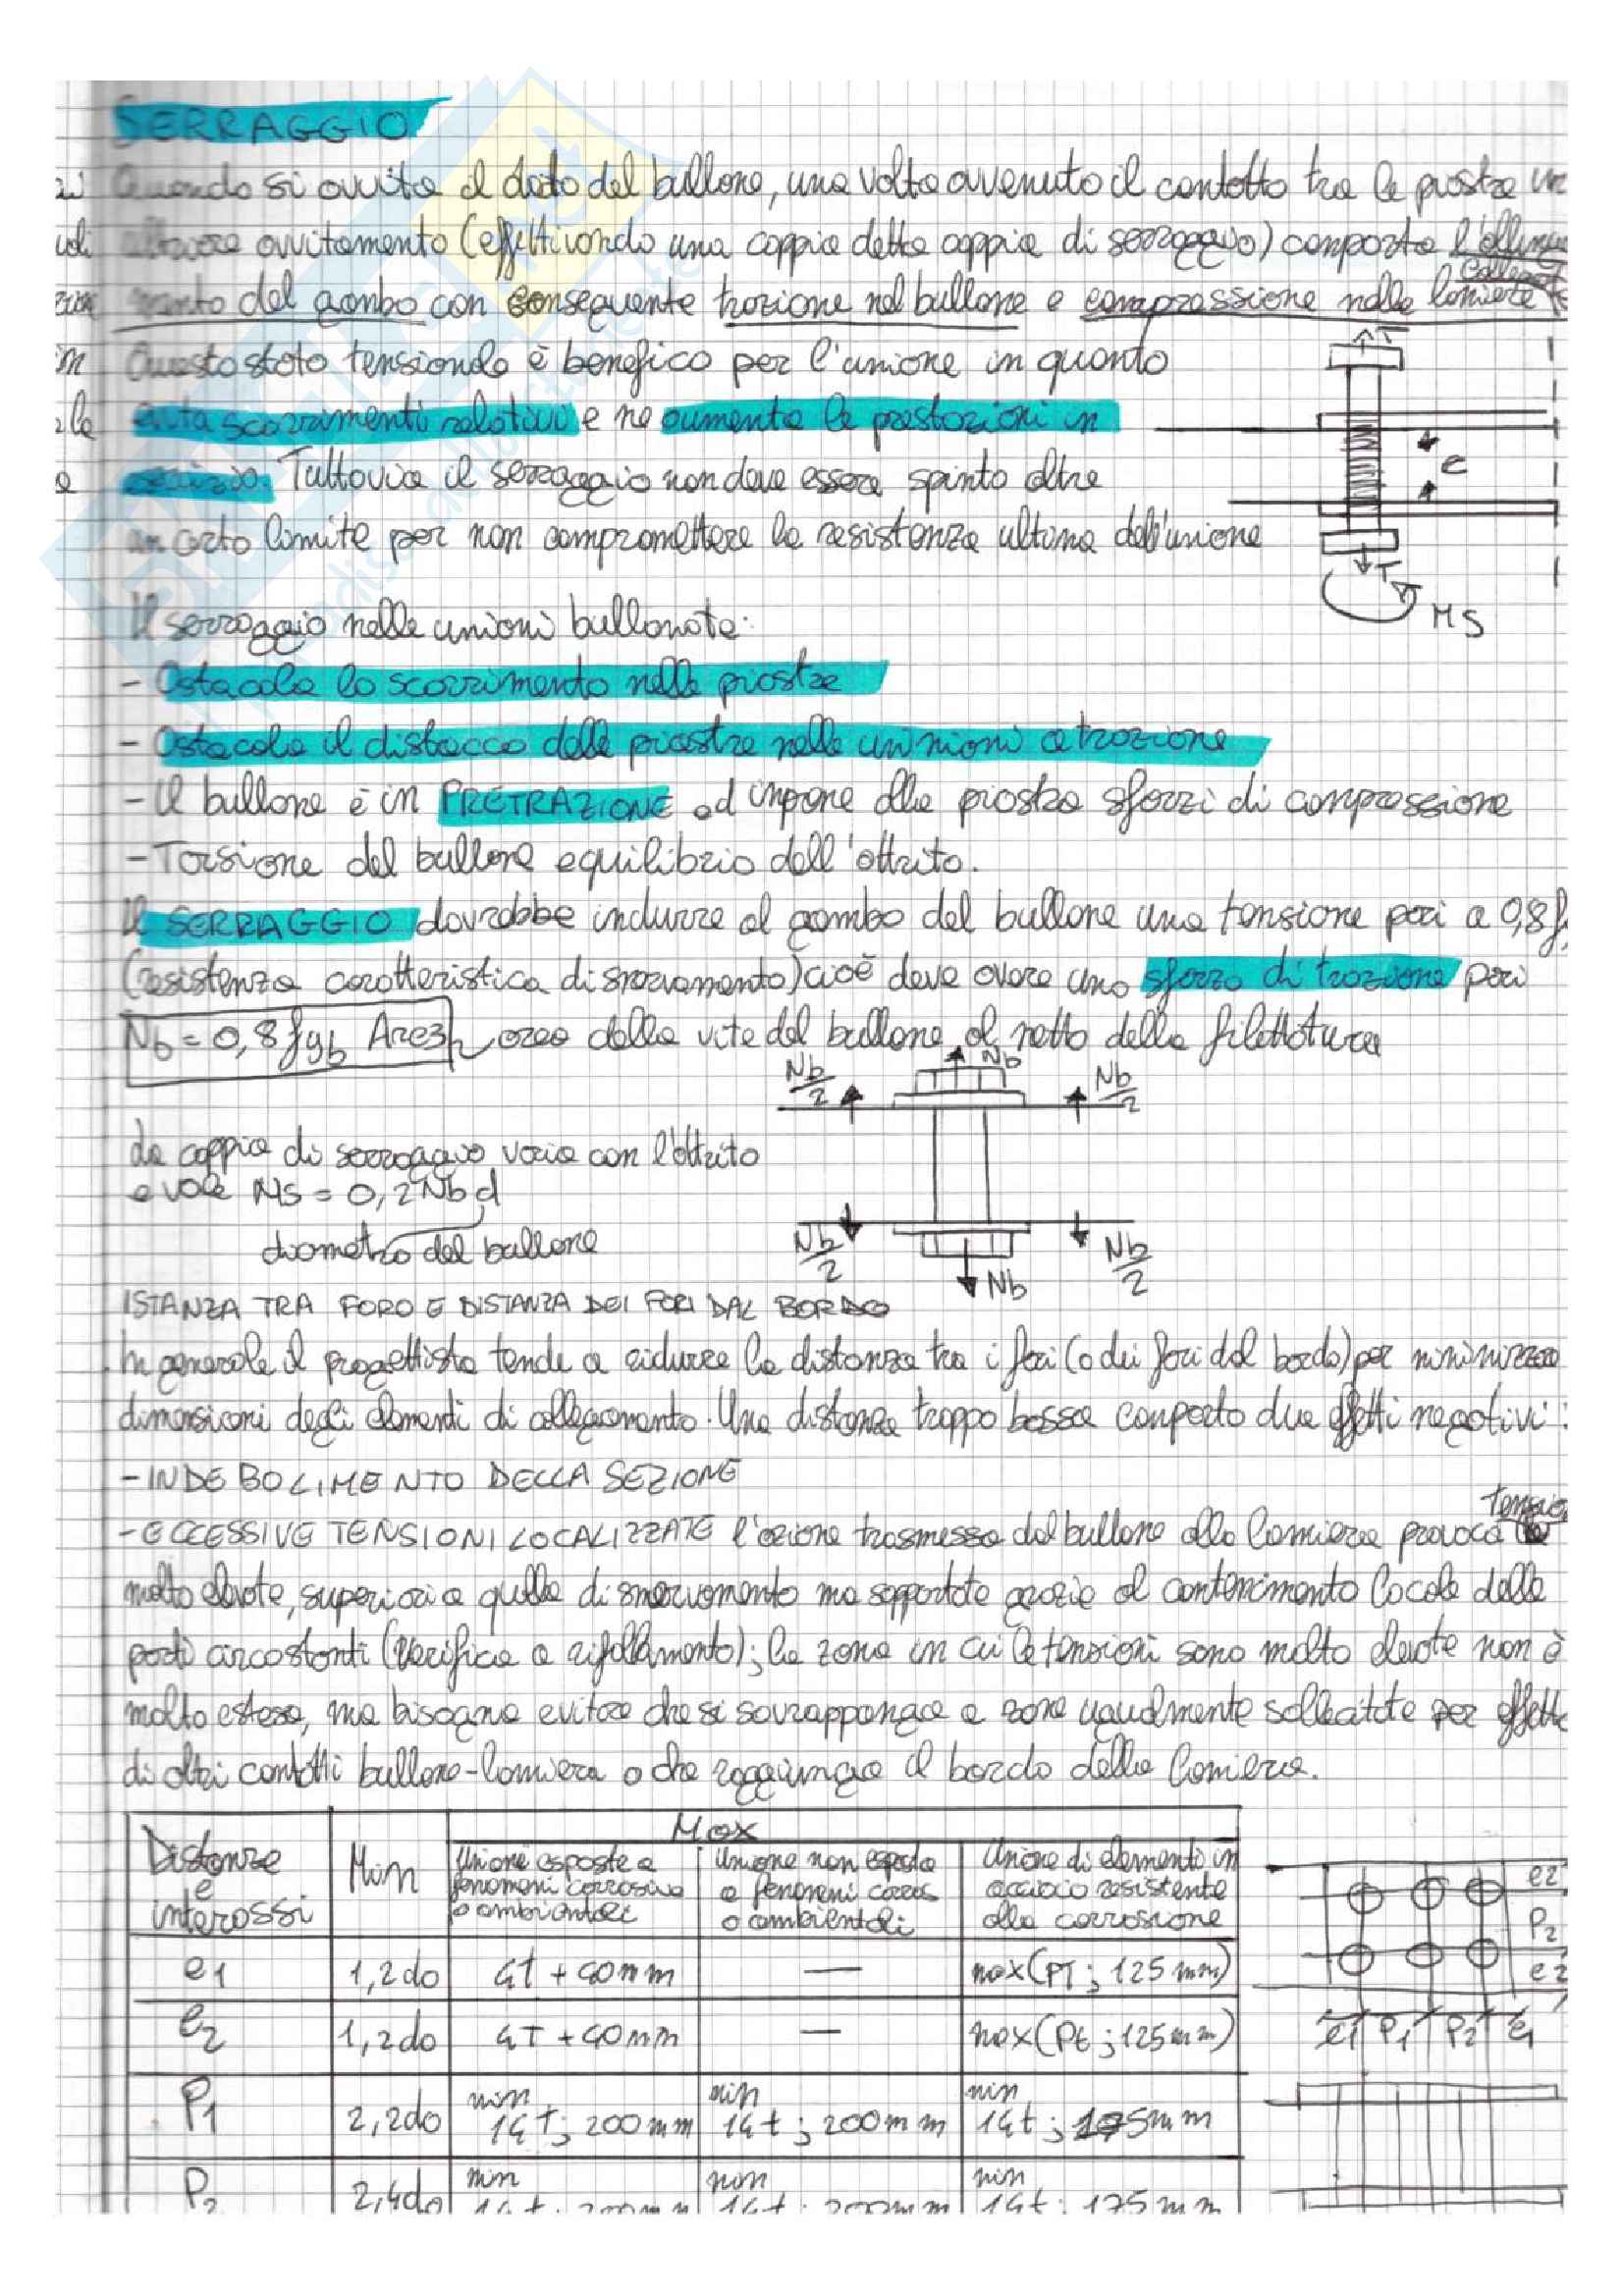 SERRAGGIO
Quando si avvita il dado del bullone, una volta avvenuto il contatto tra le piastre un
ulteriore avvitamento (effettivando una coppia detta coppia di serraggio) comporta l'allunga
mento del gambo con conseguente trazione nel bullone e compressione nelle lamiere
Questo stato tensionale è benefico per l'unione in quanto
evita scorrimenti relativi e ne aumenta le prestazioni in
esercizio. Tuttavia il serraggio non deve essere spinto oltre
un certo limite per non compromettere la resistenza ultima dell'unione
e
T
MS
Il serraggio nelle unioni bullonate:
- Ostacola lo scorrimento nelle piastre
- Ostacola il distacco delle piastre nelle uninioni a trazione
- Il bullone è in PRETRAZIONE ed inpone alla piastra sforzi di compressione
- Torsione del bullone equilibrio dell'attrito.
Il SERRAGGIO dovrebbe indurre al gambo del bullone una tensione pari a 0,8f
(resistenza caratteristica di snervamento) cioè deve avere uno sforzo di trazione pari
Nb = 0,8 fyb Ares area della vite del bullone al netto della filettatura
Nb/2 Nb Nb/2
La coppia di serraggio varia con l'attrito
e vale Ms = 0,2 Nb d
diametro del bullone
Nb/2 Nb Nb/2
ISTANZA TRA FORO E DISTANZA DEI FORI DAL BORDO
In generale il progettista tende a ridurre la distanza tra i fori (o dei fori dal bordo) per minimizzare
dimensioni degli elementi di collegamento. Una distanza troppo bassa comporta due effetti negativi:
- INDEBOLIMENTO DELLA SEZIONE
- ECCESSIVE TENSIONI LOCALIZZATE l'azione trasmessa dal bullone alla lamiera provoca tensio
molto elevate, superiori a quelle di snervamento ma sopportate grazie al contenimento locale delle
parti circostanti (verifica a rifollamento); la zona in cui le tensioni sono molto elevate non è
molto estesa, ma bisogna evitare che si sovrappongae a zone ugualmente sollecitate per effetto
di altri contatti bullone-lamiera o che raggiunga il bordo della lamiera.
Distanze e interassi Min Max
Unione esposte a fenomeni corrosivo o ambientali
Unione non esposte a fenomeni corros o ambientali
Unione di elementi in acciaio resistente alla corrosione
e1 1,2do 4t + 40mm — max(8t; 125 mm)
e2 1,2do 4t + 40mm — max(8t; 125mm)
P1 2,2do min 14t; 200mm min 14t; 200mm min 14t; 175mm
P2 2,4do min 14t; 200mm min 14t; 200mm min 14t; 175mm
e2
P2
e2
e1 P1 P2 e1